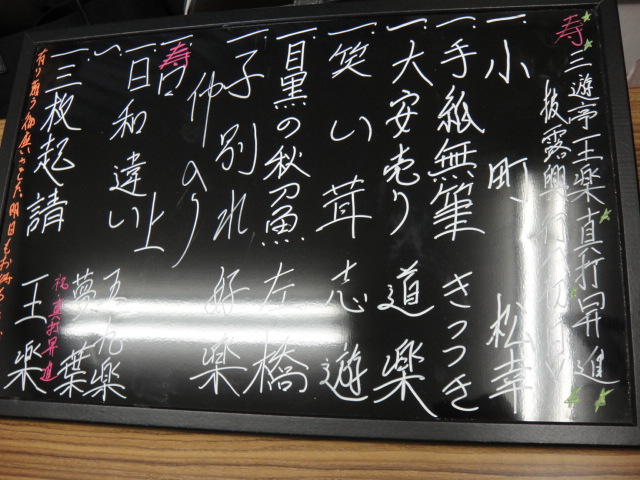 寿 三遊亭王楽真打昇進
披露興行
一、小町 松幸
一、手紙無筆 きつつき
一、大安売り 道楽
一、笑い茸 志遊
一、目黒の秋刀魚 左橋
一、子別れ 好楽
仲入り
一、寿口上
一、日和違い 五九楽
一、 夢葉
一、三枚起請 王楽
祝真打昇進
有り難う御座いました 明日も